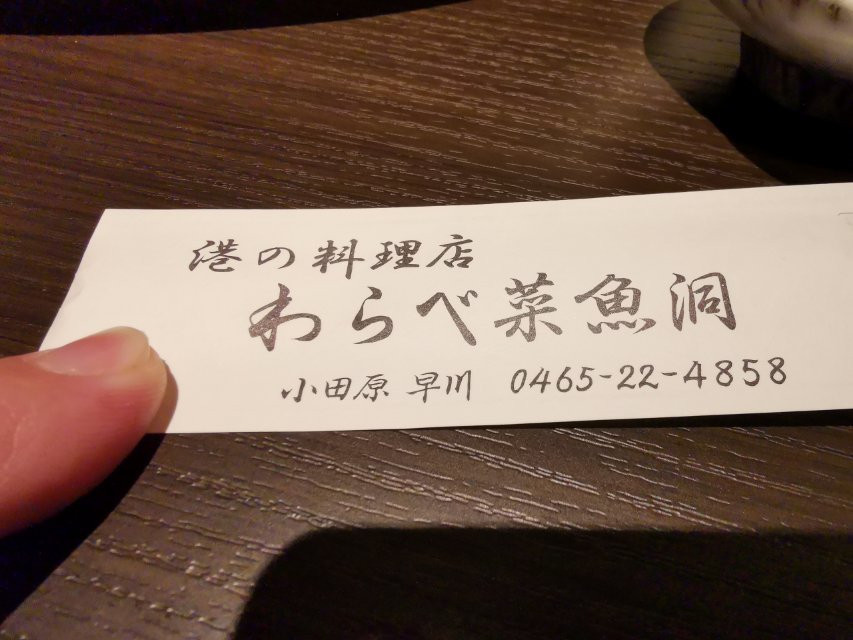 港の料理店
わらべ菜魚洞
小田原 早川 0465-22-4858